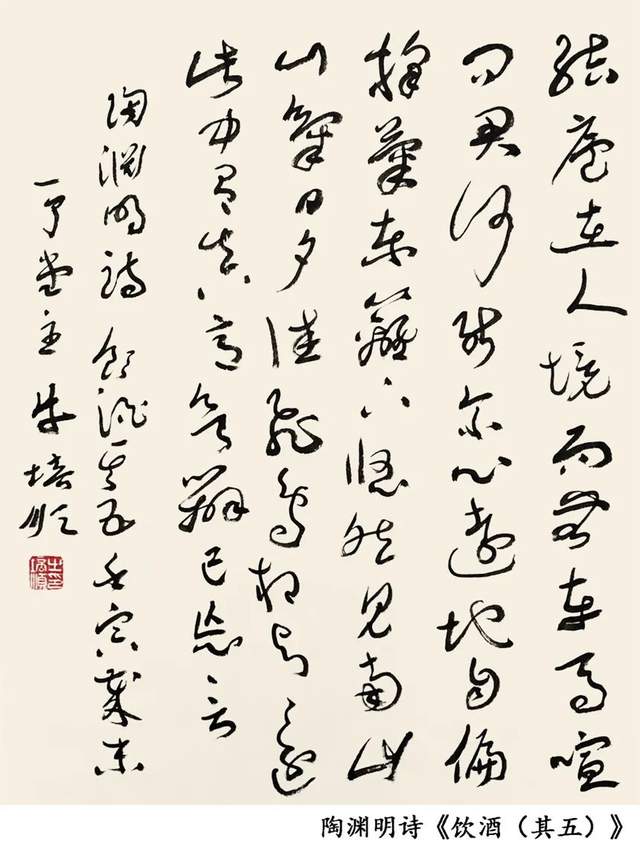 結廬在人境而無車馬喧
問君何能爾心遠地自偏
採菊東籬下悠然見南山
山氣日夕佳飛鳥相與還
此中有真意欲辨已忘言
陶淵明詩飲酒其五壬寅歲末
堂主牛培順
陶渊明诗《饮酒（其五）》